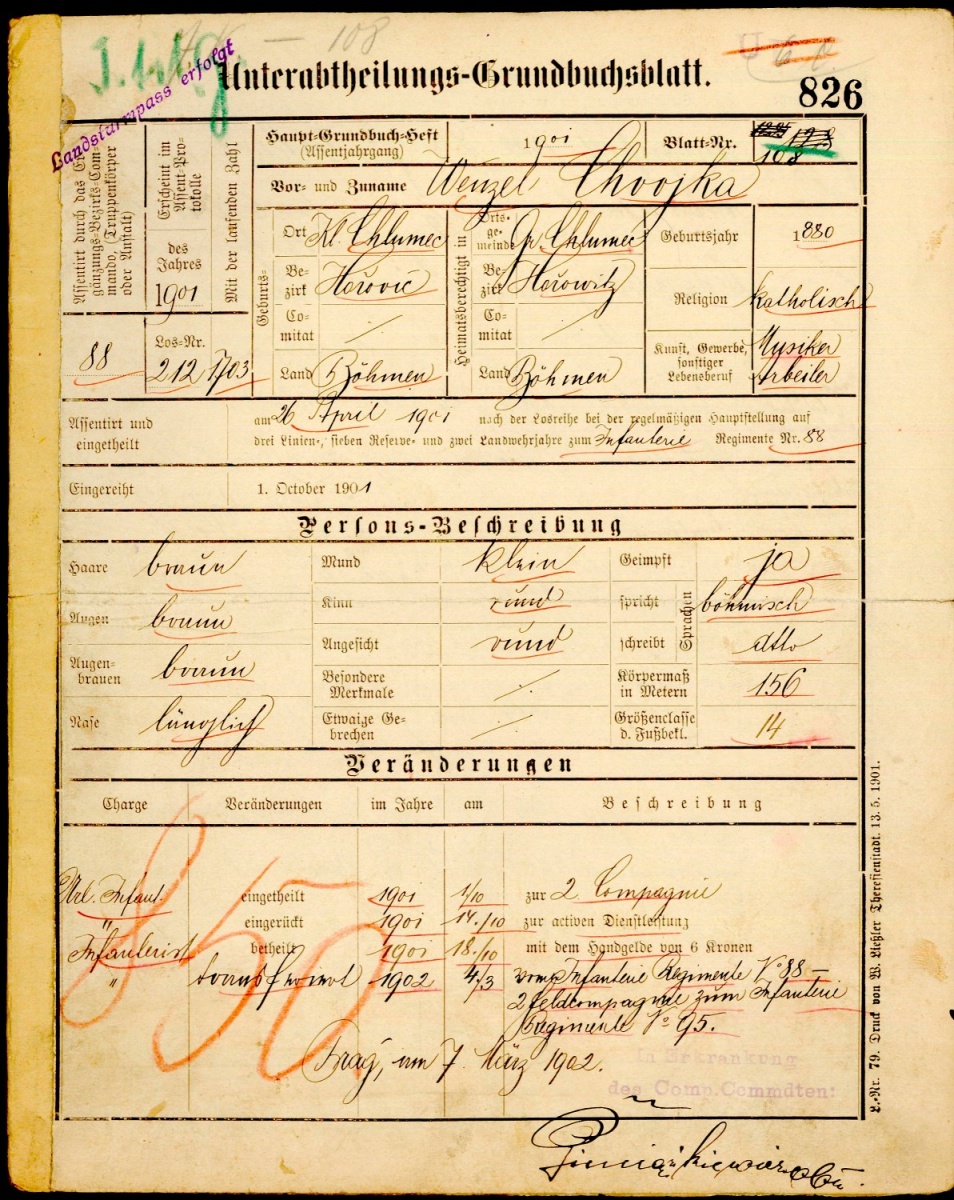 108
Landsturmpass erfolgt
Unterabtheilungs-Grundbuchsblatt.
826
Assentirt durch das Ergänzungs-Bezirks-Commando, (Truppenkörper oder Anstalt)
88
Erscheint im Assent-Protokolle
des Jahres
1901
Mit der laufenden Zahl
Los-Nr.
212 1703
Haupt-Grundbuch-Heft
(Assentjahrgang)
1901
Blatt-Nr.
108
Vor- und Zuname Wenzel Chvojka
Geburts-
Ort Kl. Chlumec
Bezirk Hořovic
Comitat /
Land Böhmen
Heimatsberechtigt in
Ortsgemeinde Gr. Chlumec
Bezirk Hořowitz
Comitat /
Land Böhmen
Geburtsjahr 1880
Religion katholisch
Kunst, Gewerbe, sonstiger Lebensberuf
Musiker
Arbeiter
Assentirt und eingetheilt
am 26 April 1901 nach der Losreihe bei der regelmäßigen Hauptstellung auf
drei Linien-, sieben Reserve- und zwei Landwehrjahre zum Infanterie Regimente Nr. 88
Eingereiht 1. October 1901
Persons-Beschreibung
Haare braun
Augen braun
Augenbrauen braun
Nase länglich
Mund klein
Kinn rund
Angesicht rund
Besondere Merkmale ./.
Etwaige Gebrechen ./.
Geimpft ja
Sprachen
spricht böhmisch
schreibt dtto
Körpermaß in Metern 156
Größenclasse d. Fußbekl. 14
Veränderungen
Charge Veränderungen im Jahre am Beschreibung
Url. Infant. eingetheilt 1901 1/10 zur 2. Compagnie
" eingerückt 1901 14./10 zur activen Dienstleistung
Infanterist betheilt 1901 18./10 mit dem Handgelde von 6 Kronen
" transferirt 1902 4/3 vom Infanterie Regimente No 88 –
2 Feldcompagnie zum Infanterie
Regimente No 95.
Prag, am 7. März 1902.
In Erkrankung
des Comp.Commdten:
L.-Nr. 79. Druck von W. Ließler Theresienstadt. 13. 5. 1901.